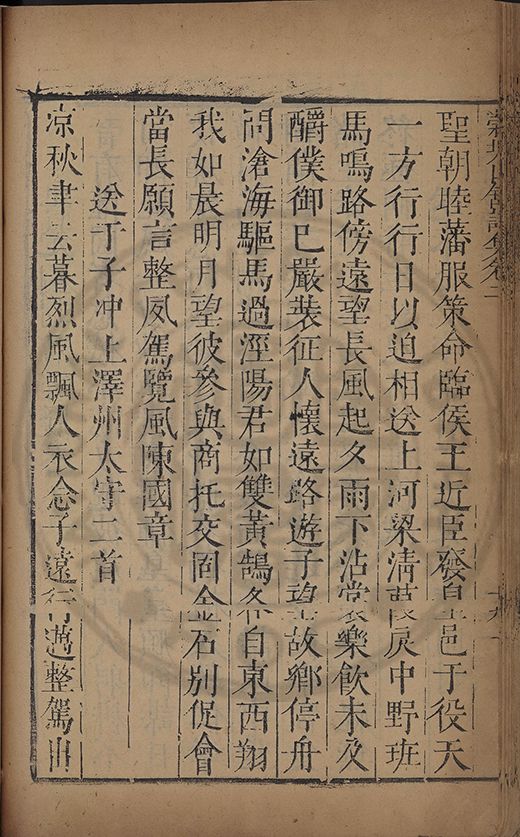 聖朝睦藩服策命臨侯王近臣發皇邑于役天
一方行行日以迫相送上河梁清戾中野班
馬鳴路傍遠望長風起夕雨下沾裳樂飲未及
釂僕御已嚴裝征人懷遠路遊子望故鄉停舟
問滄海驅馬過涇陽君如雙黃鵠各自東西翔
我如晨明月望彼參與商托交固金石別促會
當長願言整夙駕覽風陳國章
送于子冲上澤州太守二首
凉秋聿云暮烈風飄人衣念子遠行邁整駕出